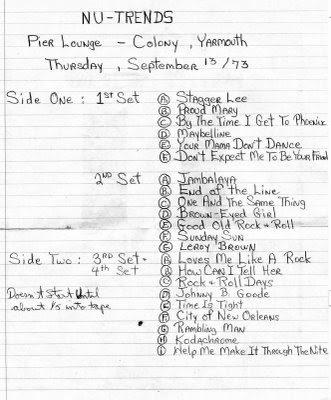 NU-TRENDS
PIER LOUNGE - COLONY, YARMOUTH
THURSDAY, SEPTEMBER 13/73
SIDE ONE: 1ST SET
Ⓐ STAGGER LEE
Ⓑ PROUD MARY
Ⓒ BY THE TIME I GET TO PHOENIX
Ⓓ MAYBELLINE
Ⓔ YOUR MAMA DON'T DANCE
Ⓕ DON'T EXPECT ME TO BE YOUR FRIEND
2ND SET
Ⓐ JAMBALAYA
Ⓑ END OF THE LINE
Ⓒ ONE AND THE SAME THING
Ⓓ BROWN-EYED GIRL
Ⓔ GOOD OLD ROCK & ROLL
Ⓕ SUNDAY SUN
Ⓖ LEROY BROWN
SIDE TWO: 3RD SET -
4TH SET
Ⓐ LOVES ME LIKE A ROCK
Ⓑ HOW CAN I TELL HER
Ⓒ ROCK & ROLL DAYS
Ⓓ JOHNNY B. GOODE
Ⓔ TIME IS TIGHT
Ⓕ CITY OF NEW ORLEANS
Ⓖ RAMBLING MAN
Ⓗ KODACHROME
Ⓘ HELP ME MAKE IT THROUGH THE NITE
Doesn't start until
about 1/3 into tape